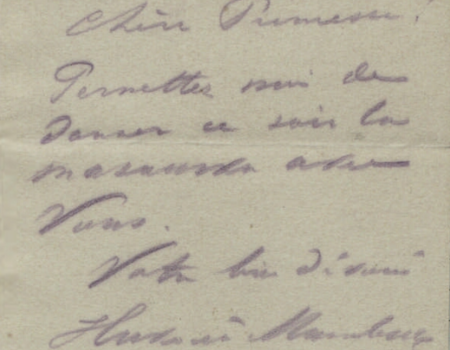 Chère Princesse!
Permettez moi de
danser ce soir la
masourka avec
Vous.
Votre bien dévoué